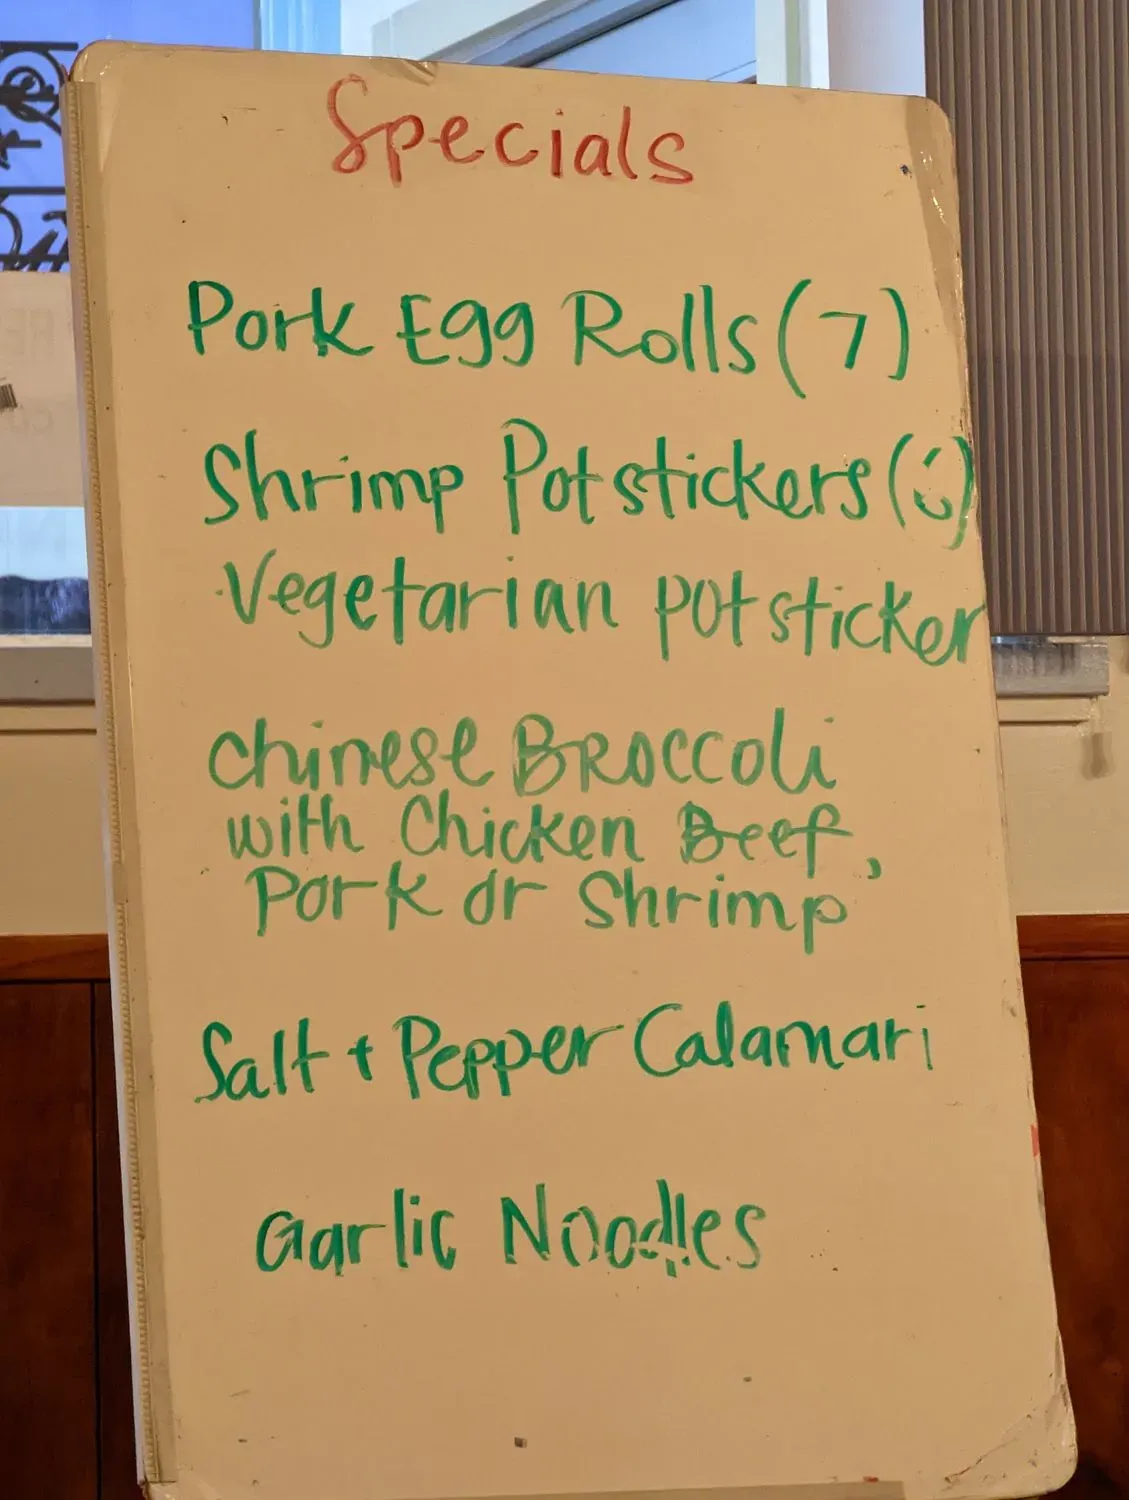 Specials
Pork Egg Rolls (7)
Shrimp Potstickers (6)
Vegetarian potsticker
Chinese Broccoli
with Chicken Beef,
Pork or Shrimp
Salt + Pepper Calamari
Garlic Noodles